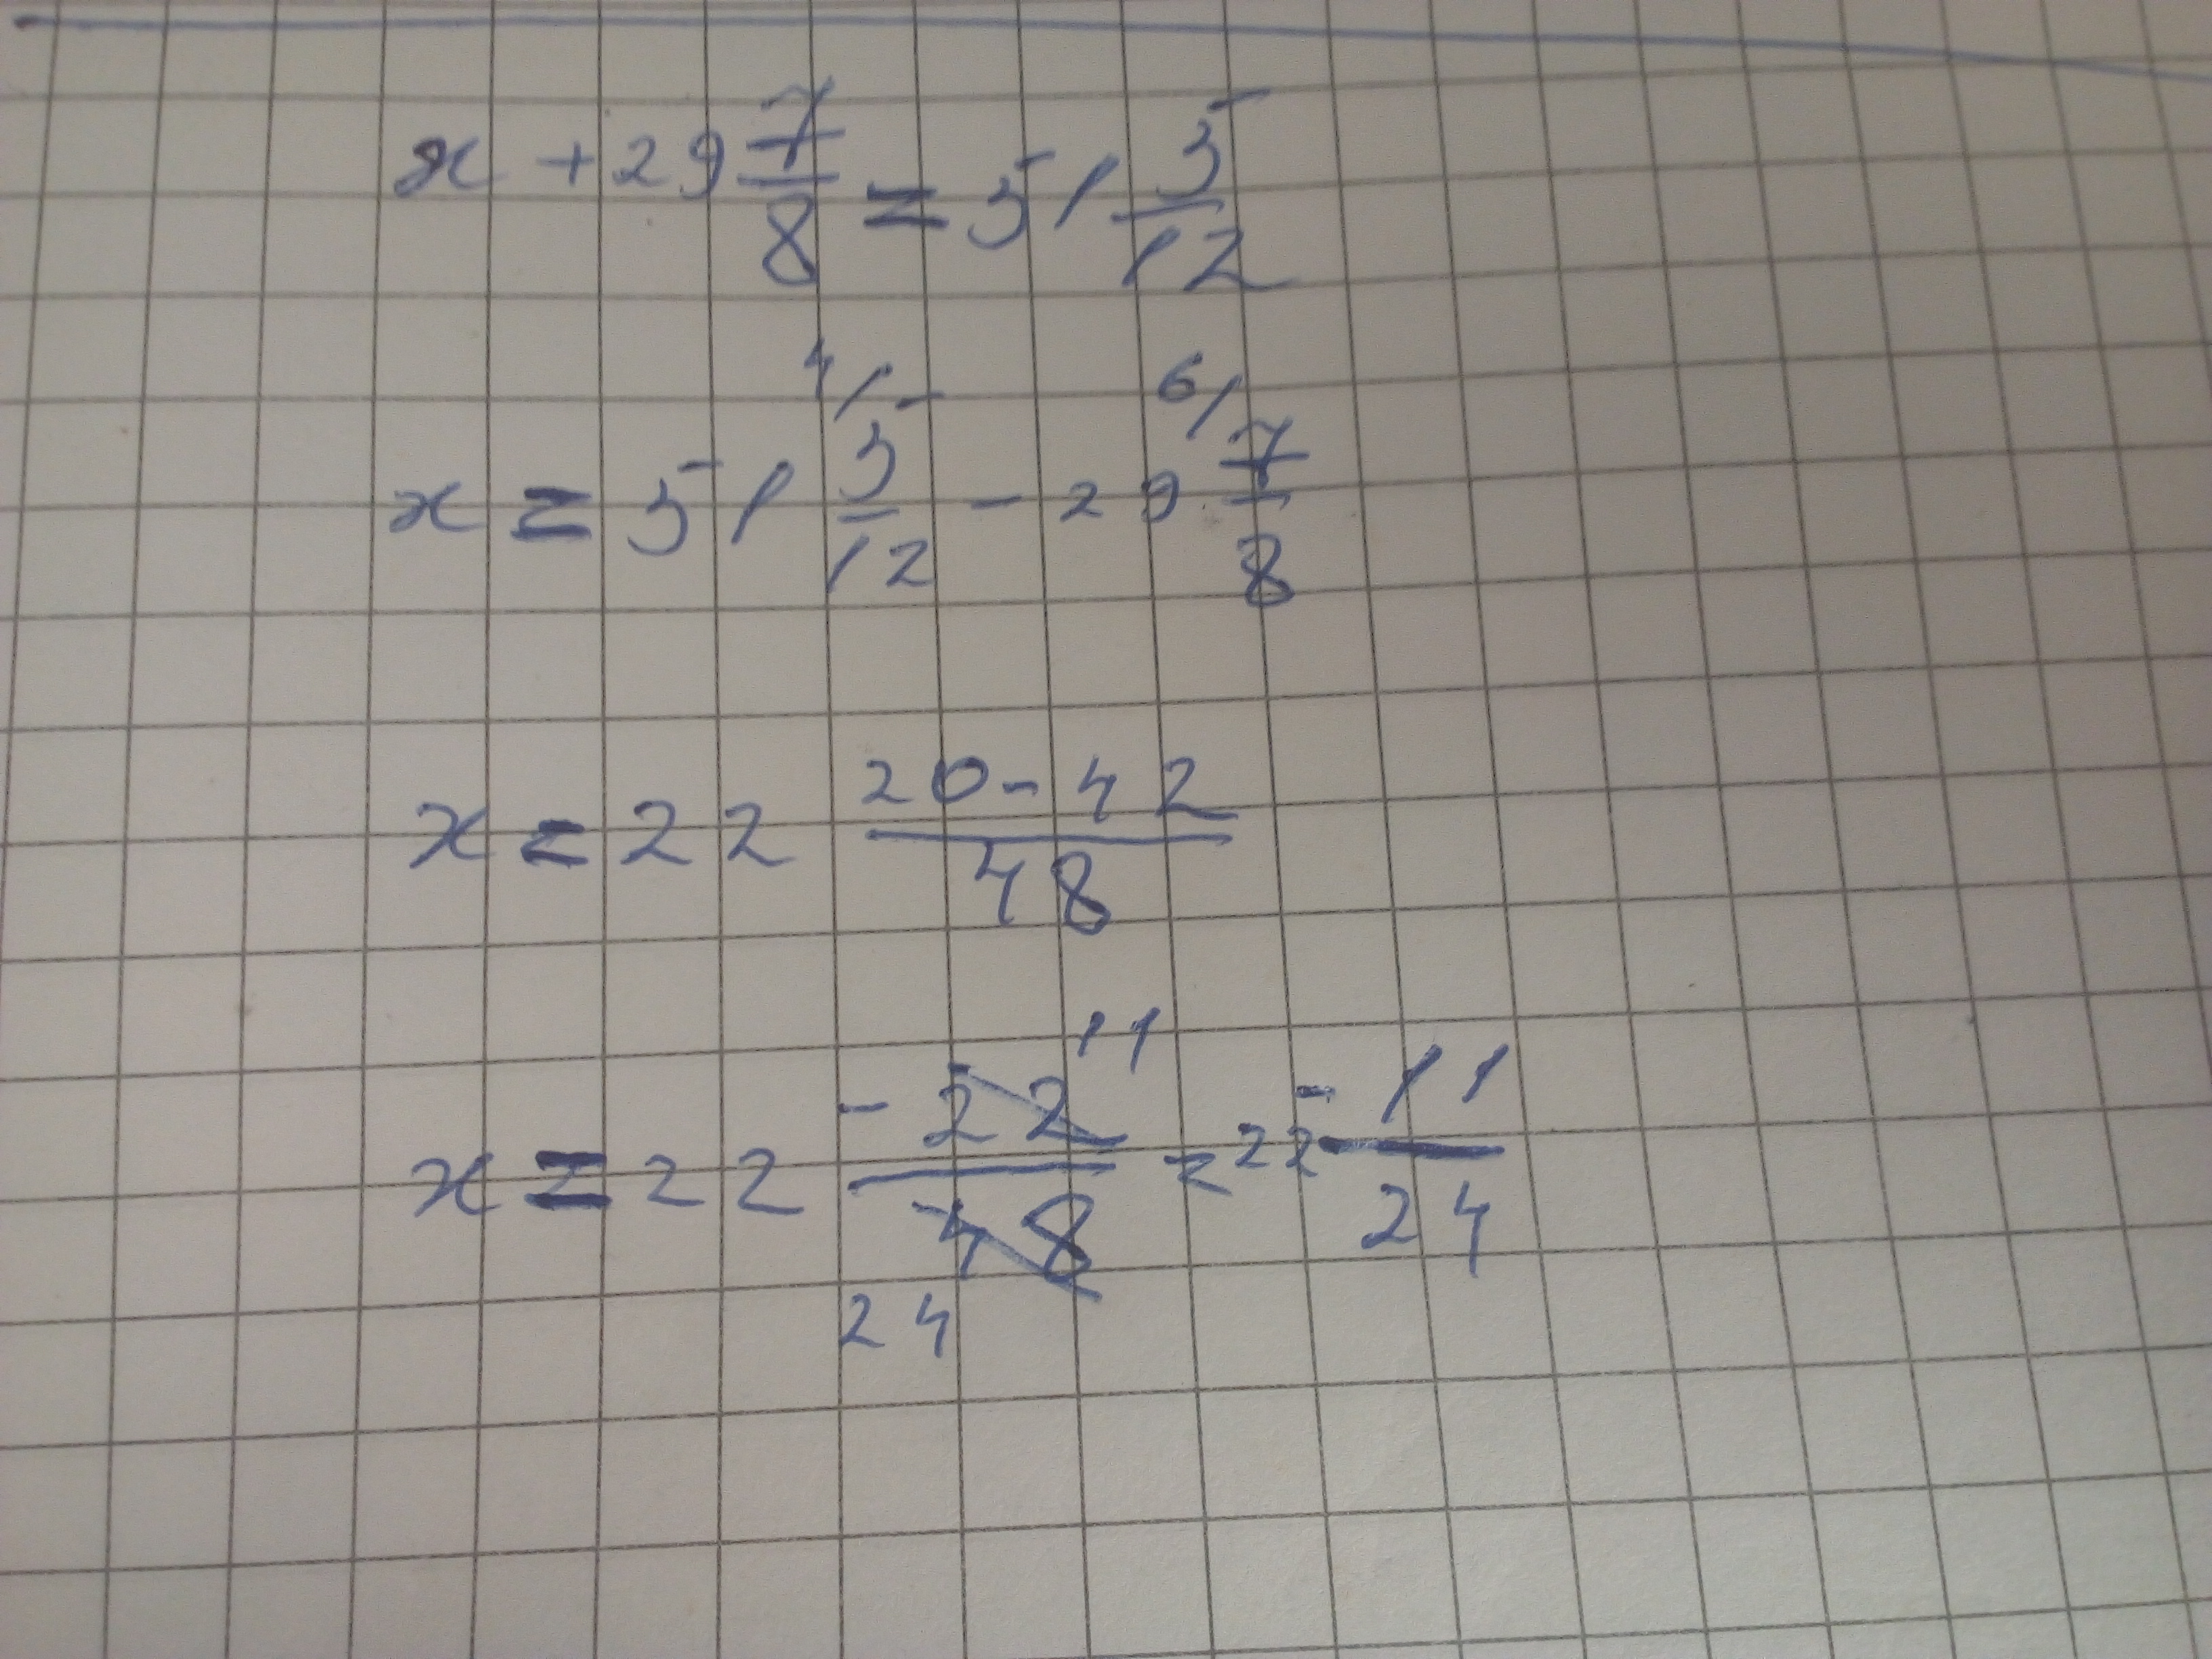 x + 29 7/8 = 51 5/12
x = 51 4/ 5/12 - 29 6/ 7/8
x = 22 20-42/48
x = 22 -22/48 11 24 = 22 -11/24